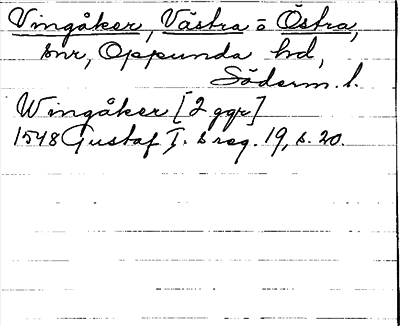 Vingåker, Västra o Östra,
snr, Oppunda hd,
Söderm. l.
Wingåker [2 ggr]
1548 Gustaf I:s reg. 19, s. 20.